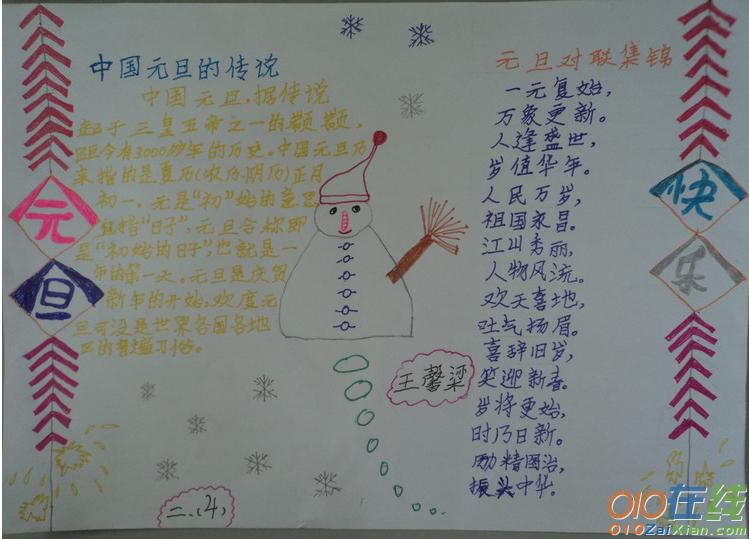 元
旦
中国元旦的传说
中国元旦,据传说
起于三皇五帝之一的颛顼,
距今有3000多年的历史。中国元旦历
来指的是夏历(农历、阴历)正月
初一。元是“初”始的意思
指“日子”,元旦合称即
是“初始的日子”,也就是一
年的第一天。元旦是庆贺
新年的开始,欢度元
旦可说是世界各国各地
区的普遍习俗。
二.(4)
王馨梁
元旦对联集锦
一元复始,
万象更新。
人逢盛世,
岁值华年。
人民万岁,
祖国永昌。
江山秀丽,
人物风流。
欢天喜地,
吐气扬眉。
喜辞旧岁,
笑迎新春。
岁将更始,
时乃日新。
励精图治,
振头中华。
快
乐
010在线
010ZaiXian.com